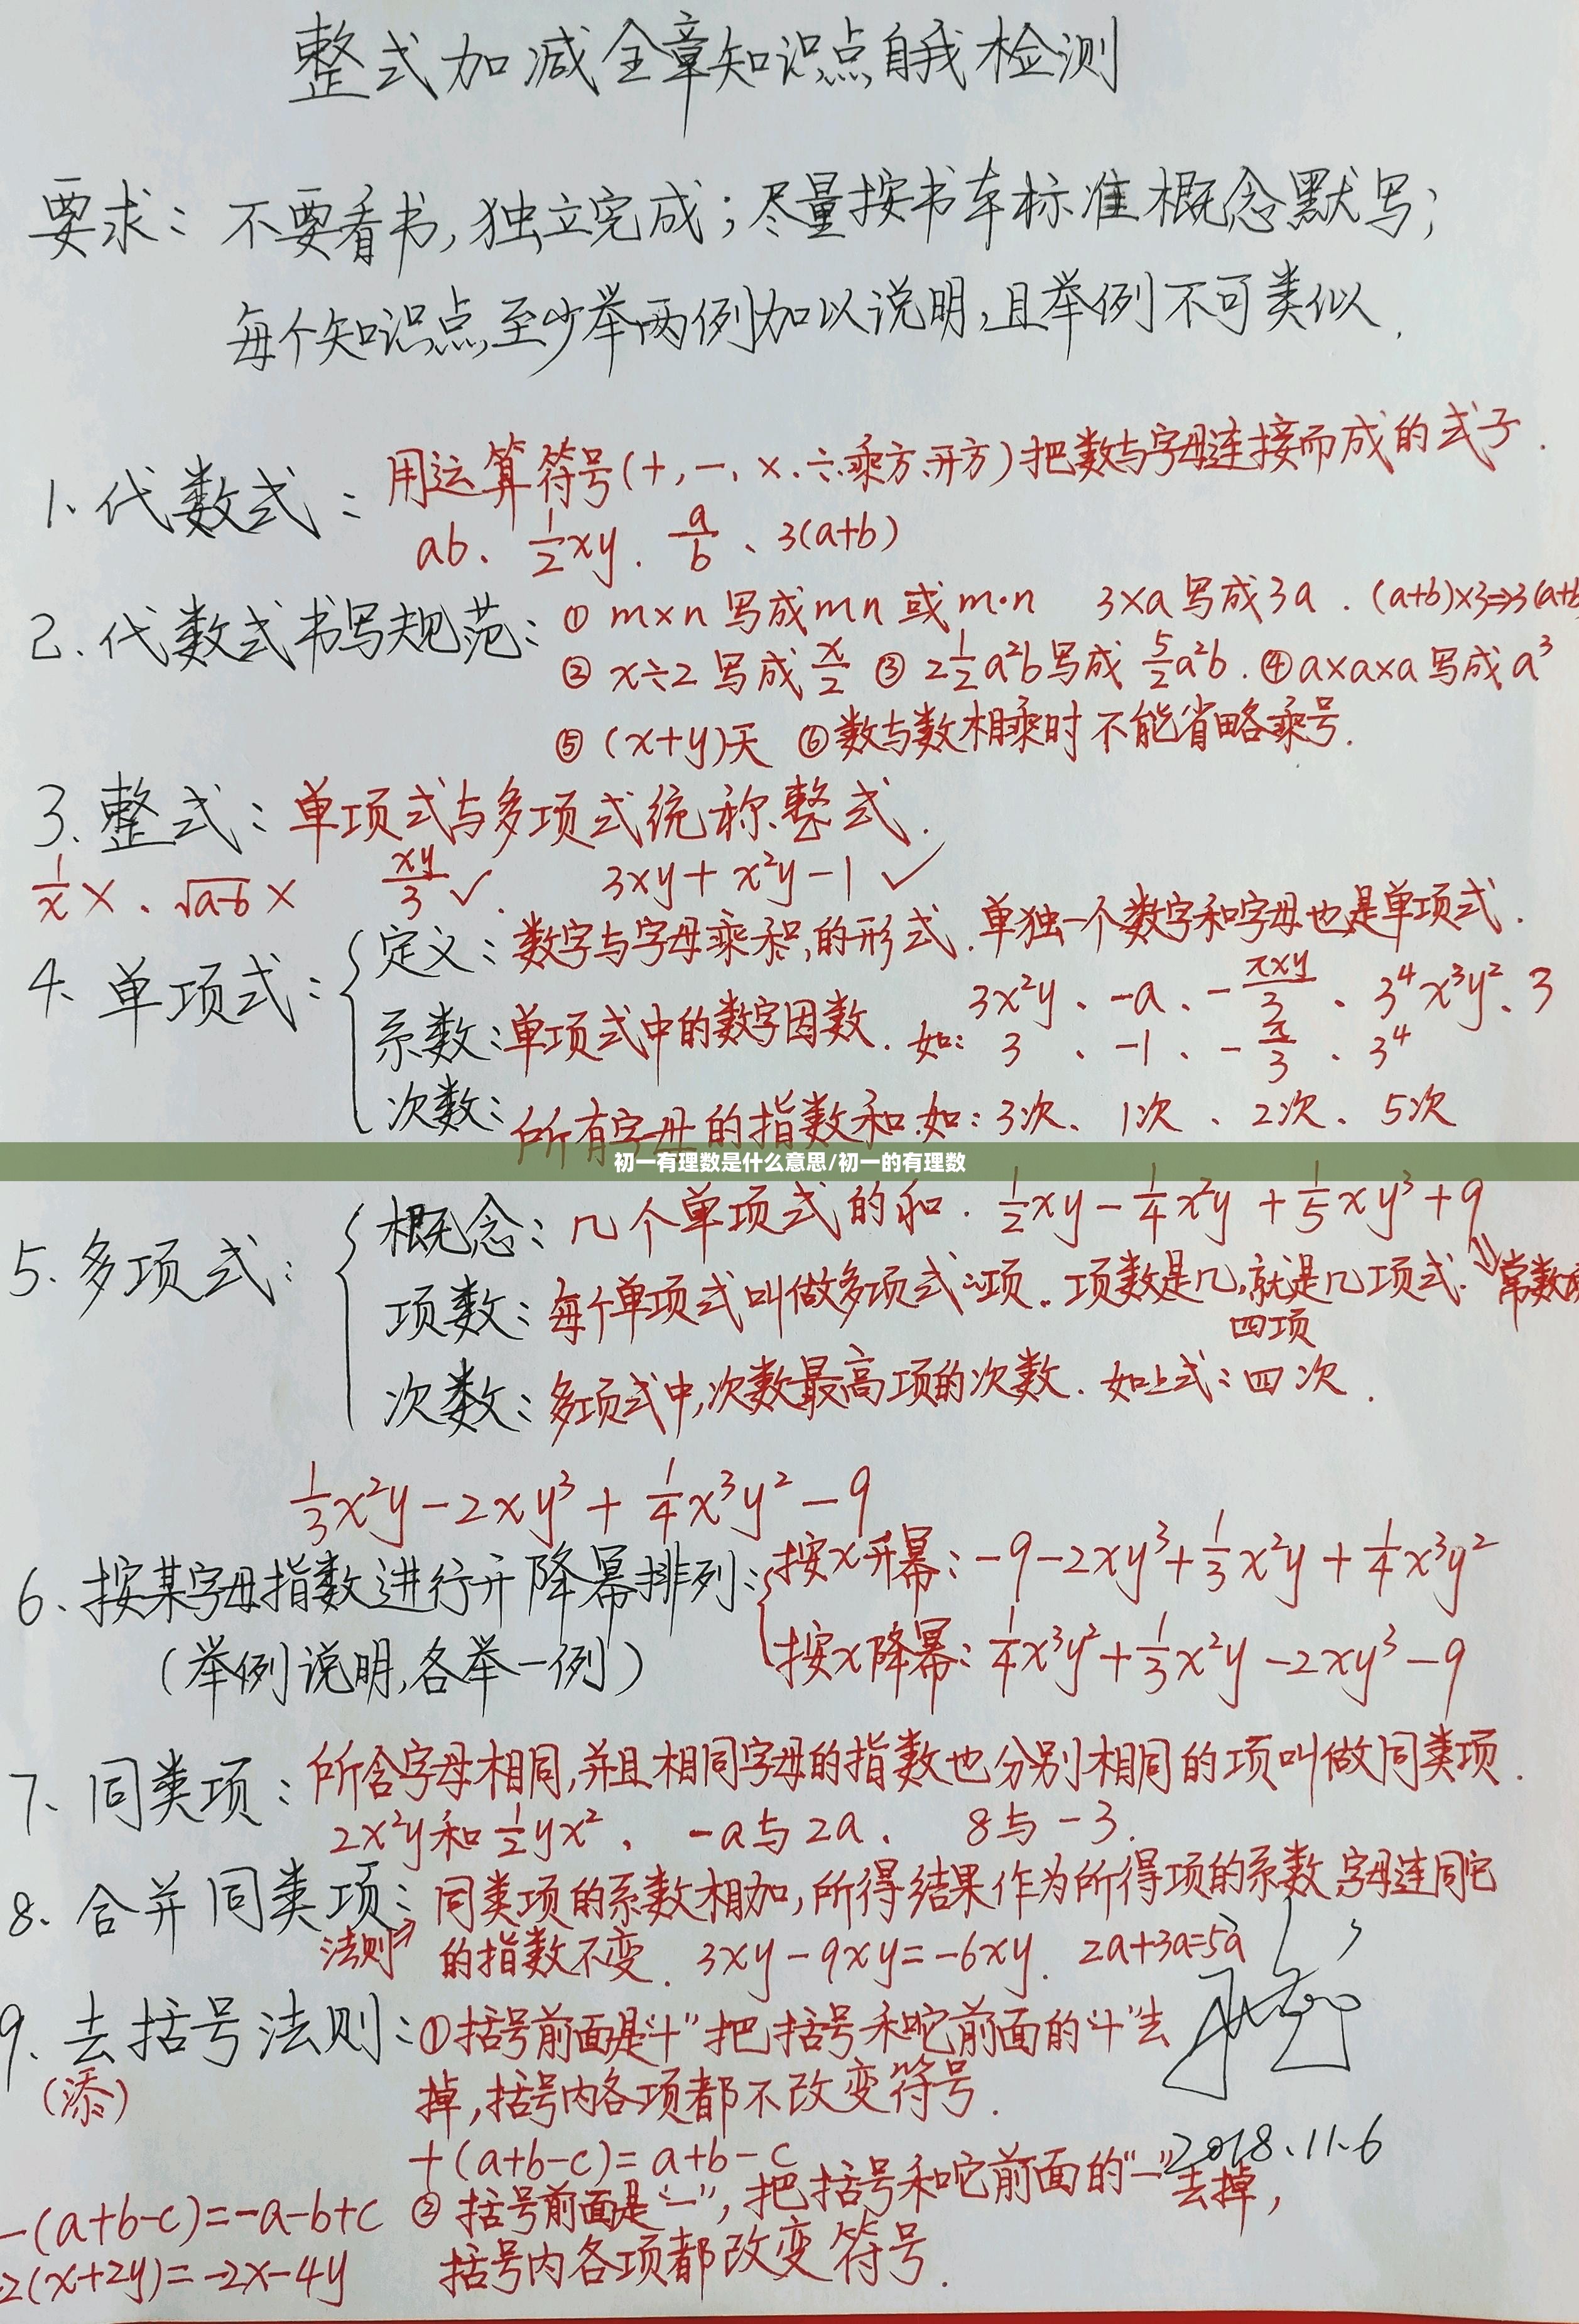 整式加减全章知识点自我检测
要求：不要看书,独立完成；尽量按书本标准概念默写；
每个知识点至少举两例加以说明,且举例不可类似.
1、代数式：用运算符号(+,－、×、÷、乘方、开方)把数与字母连接而成的式子.
ab、½xy、a/b、3(a+b)
2、代数式书写规范：① m×n写成mn或m·n 3×a写成3a . (a+b)×3⇒3(a+b
② x÷2写成x/2 ③ 2½a²b写成5/2a²b. ④a×a×a写成a³
⑤ (x+y)天 ⑥数与数相乘时不能省略乘号.
3、整式：单项式与多项式统称整式.
1/x ×、√(a-b) × xy/3 ✓. 3xy+x²y-1 ✓
4、单项式：定义：数字与字母乘积的形式.单独一个数字和字母也是单项式.
3x²y、-a、-πxy/3、3⁴x³y²、3
系数：单项式中的数字因数. 如：3、-1、-π/3、3⁴
次数：所有字母的指数和.如：3次、1次、2次、5次
初一有理数是什么意思/初一的有理数
5、多项式：概念：几个单项式的和. ½xy-¼x²y+⅕xy³+9
项数：每个单项式叫做多项式的项. 项数是几,就是几项式. ⇒常数项
四项
次数：多项式中,次数最高项的次数. 如上式：四次.
⅓x²y-2xy³+¼x³y²-9
6、按某字母指数进行升降幂排列：按x升幂：-9-2xy³+⅓x²y+¼x³y²
（举例说明,各举一例） 按x降幂：¼x³y²+⅓x²y-2xy³-9
7、同类项：所含字母相同,并且相同字母的指数也分别相同的项叫做同类项.
2x²y和½yx²、 -a与2a、 8与-3.
8、合并同类项：同类项的系数相加,所得结果作为所得项的系数,字母连同它
法则⇒ 的指数不变. 3xy-9xy=-6xy. 2a+3a=5a
9、去括号法则：①括号前面是“+”把括号和它前面的“+”去
(添) 掉,括号内各项都不改变符号.
+(a+b-c)=a+b-c
2018.11.6
-(a+b-c)=-a-b+c ②括号前面是“-”,把括号和它前面的“-”去掉,
-2(x+2y)=-2x-4y 括号内各项都改变符号.